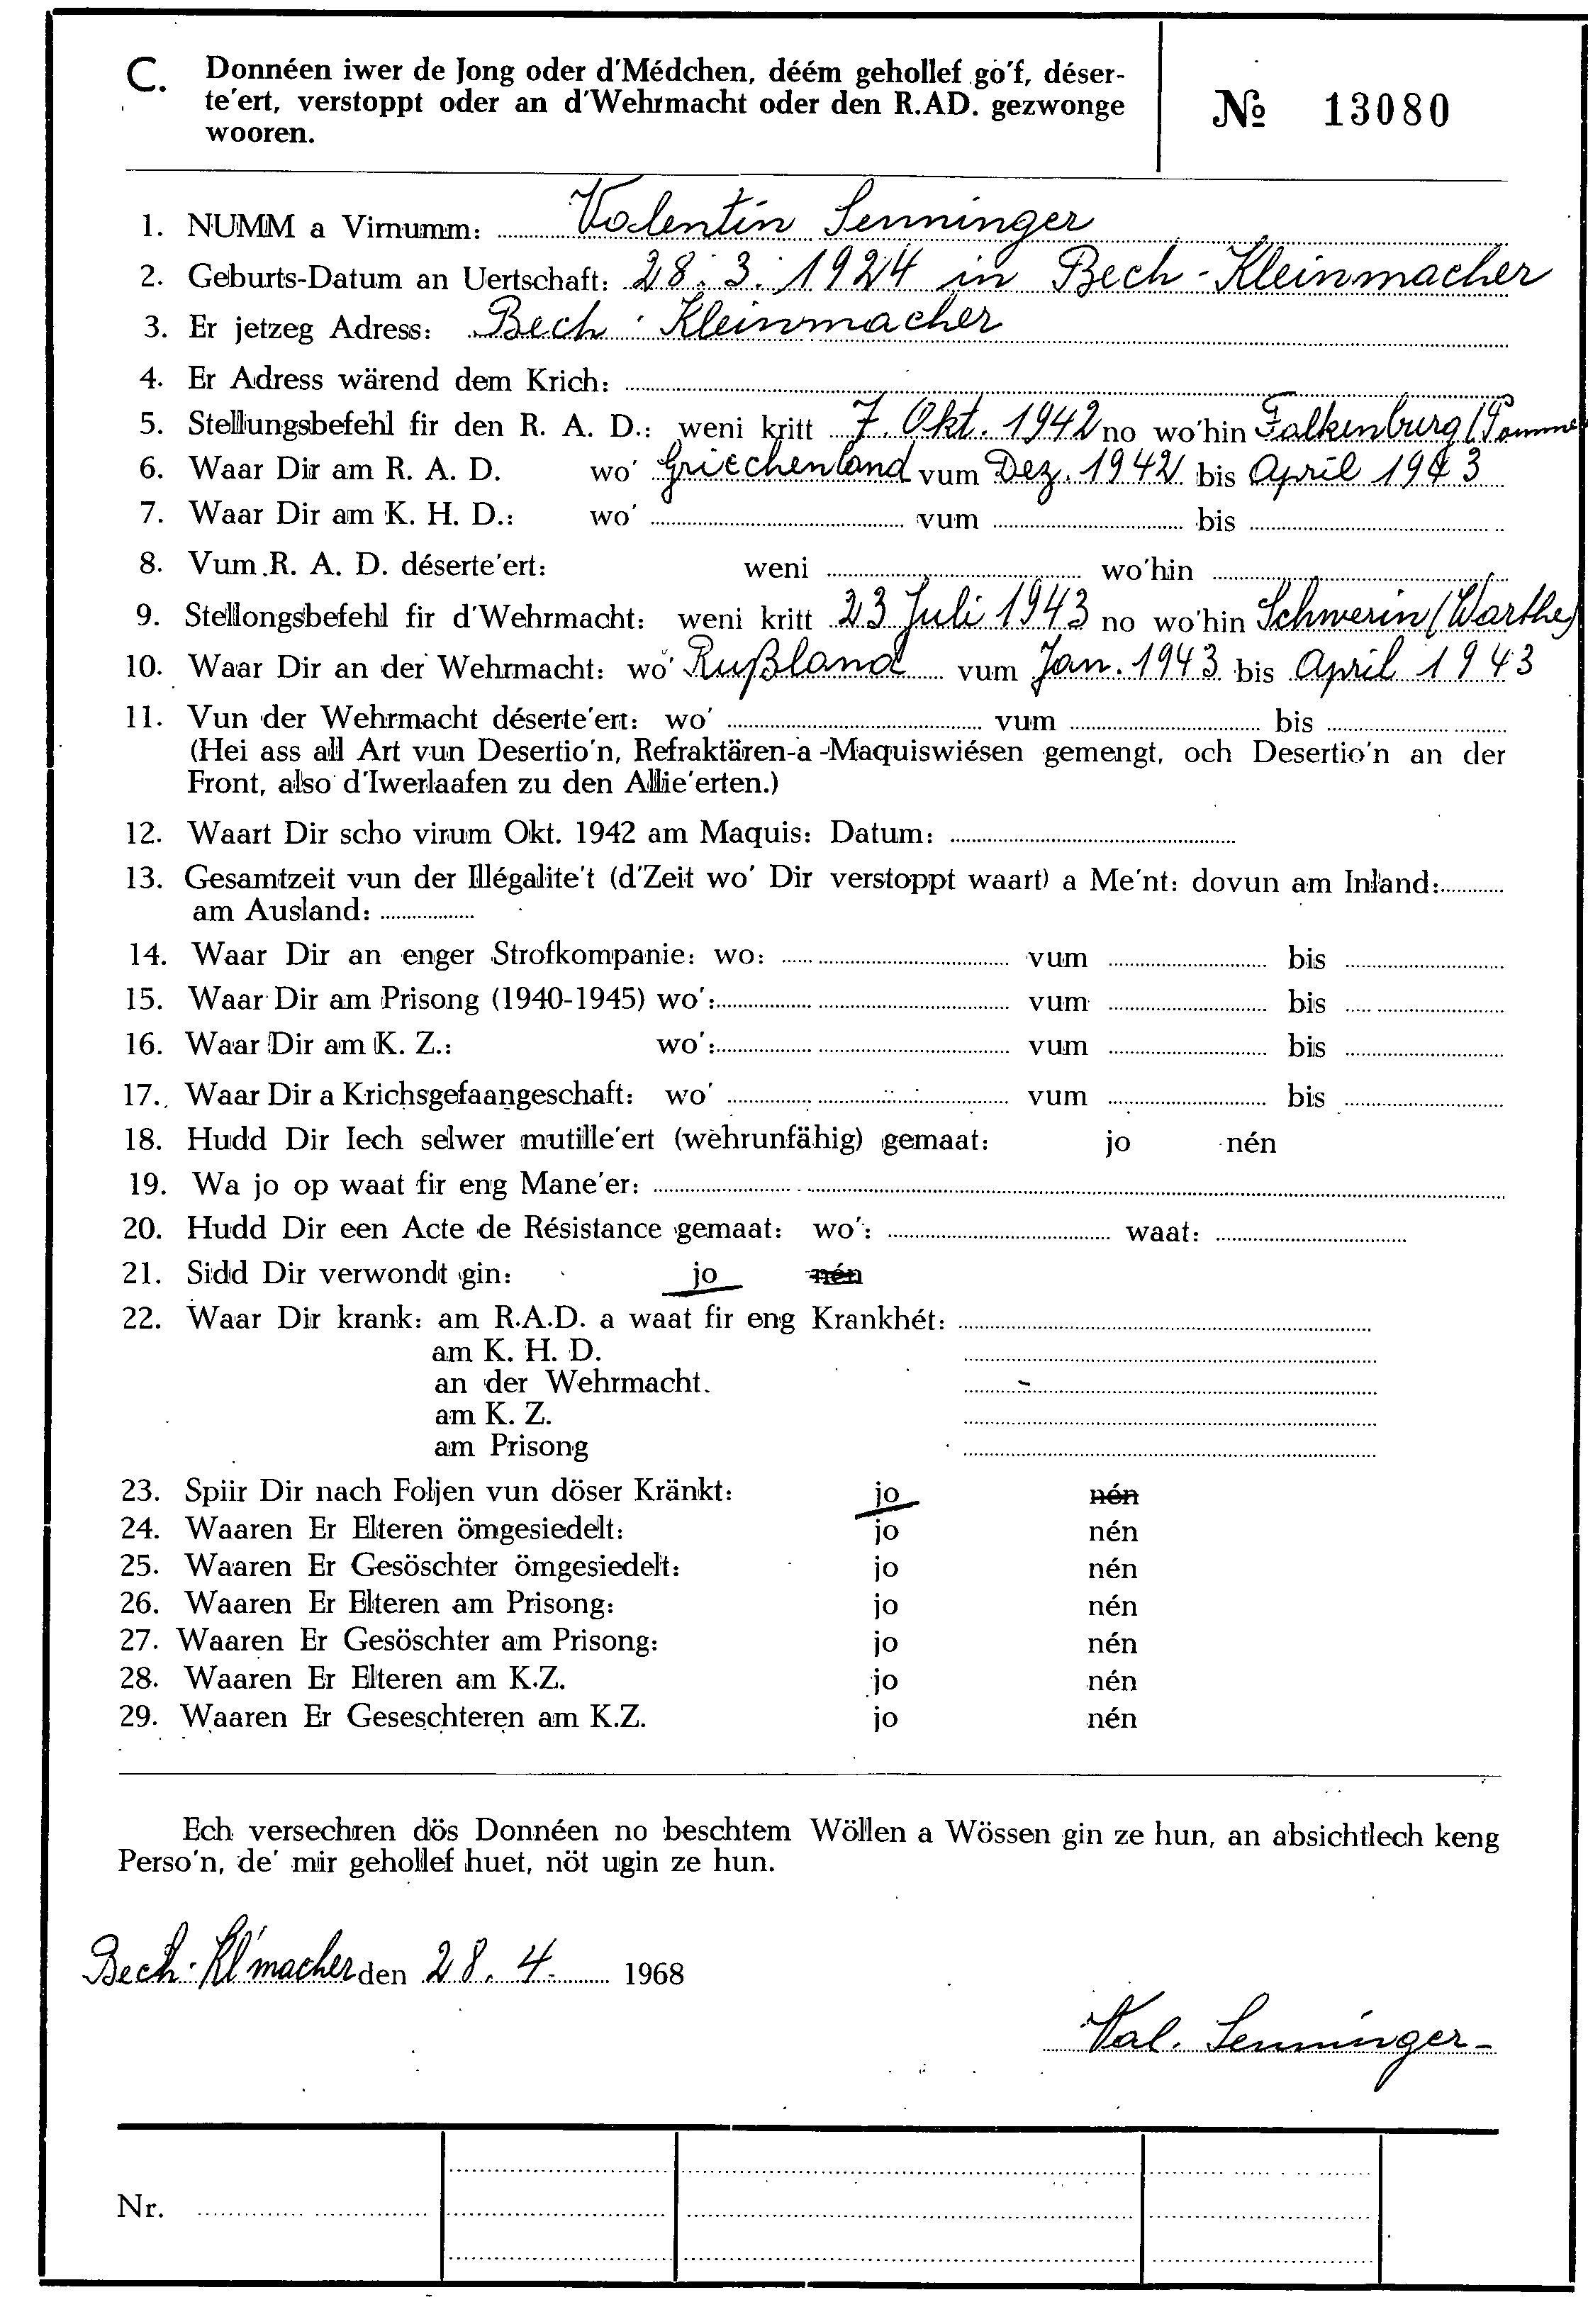 C. Donnéen iwer de Jong oder d'Médchen, déém gehollef go'f, déser-
te'ert, verstoppt oder an d'Wehrmacht oder den R.AD. gezwonge
wooren.
№ 13080
1. NUMM a Virnumm: Valentin Senninger
2. Geburts-Datum an Uertschaft: 28. 3. 1924 in Bech-Kleinmacher
3. Er jetzeg Adress: Bech-Kleinmacher
4. Er Adress wärend dem Krich:
5. Stellungsbefehl fir den R. A. D.: weni kritt 7. Okt. 1942 no wo'hin Falkenburg (Pommer
6. Waar Dir am R. A. D. wo' Griechenland vum Dez. 1942 bis April 1943
7. Waar Dir am K. H. D.: wo' vum bis
8. Vum R. A. D. déserte'ert: weni wo'hin
9. Stellongsbefehl fir d'Wehrmacht: weni kritt 23 Juli 1943 no wo'hin Schwerin (Warthe)
10. Waar Dir an der Wehrmacht: wo' Rußland vum Jan. 1943 bis April 1943
11. Vun der Wehrmacht déserte'ert: wo' vum bis
(Hei ass all Art vun Desertio'n, Refraktären-a -Maquiswiésen gemengt, och Desertio'n an der
Front, also d'Iwerlaafen zu den Allie'erten.)
12. Waart Dir scho virum Okt. 1942 am Maquis: Datum:
13. Gesamtzeit vun der Illégalite't (d'Zeit wo' Dir verstoppt waart) a Me'nt: dovun am Inland:
am Ausland:
14. Waar Dir an enger Strofkompanie: wo: vum bis
15. Waar Dir am Prisong (1940-1945) wo': vum bis
16. Waar Dir am K. Z.: wo': vum bis
17. Waar Dir a Krichsgefaangeschaft: wo' vum bis
18. Hudd Dir Iech selwer mutille'ert (wehrunfähig) gemaat: jo nén
19. Wa jo op waat fir eng Mane'er:
20. Hudd Dir een Acte de Résistance gemaat: wo': waat:
21. Sidd Dir verwondt gin: jo nén
22. Waar Dir krank: am R.A.D. a waat fir eng Krankhét:
am K. H. D.
an der Wehrmacht.
am K. Z.
am Prisong
23. Spiir Dir nach Foljen vun döser Kränkt: jo nén
24. Waaren Er Elteren ömgesiedelt: jo nén
25. Waaren Er Gesöschter ömgesiedelt: jo nén
26. Waaren Er Elteren am Prisong: jo nén
27. Waaren Er Gesöschter am Prisong: jo nén
28. Waaren Er Elteren am K.Z. jo nén
29. Waaren Er Geseschteren am K.Z. jo nén
Ech versechren dös Donnéen no beschtem Wöllen a Wössen gin ze hun, an absichtlech keng
Perso'n, de' mir gehollef huet, nöt ugin ze hun.
Bech-Kl'macher den 28. 4. 1968
Val. Senninger-
Nr.